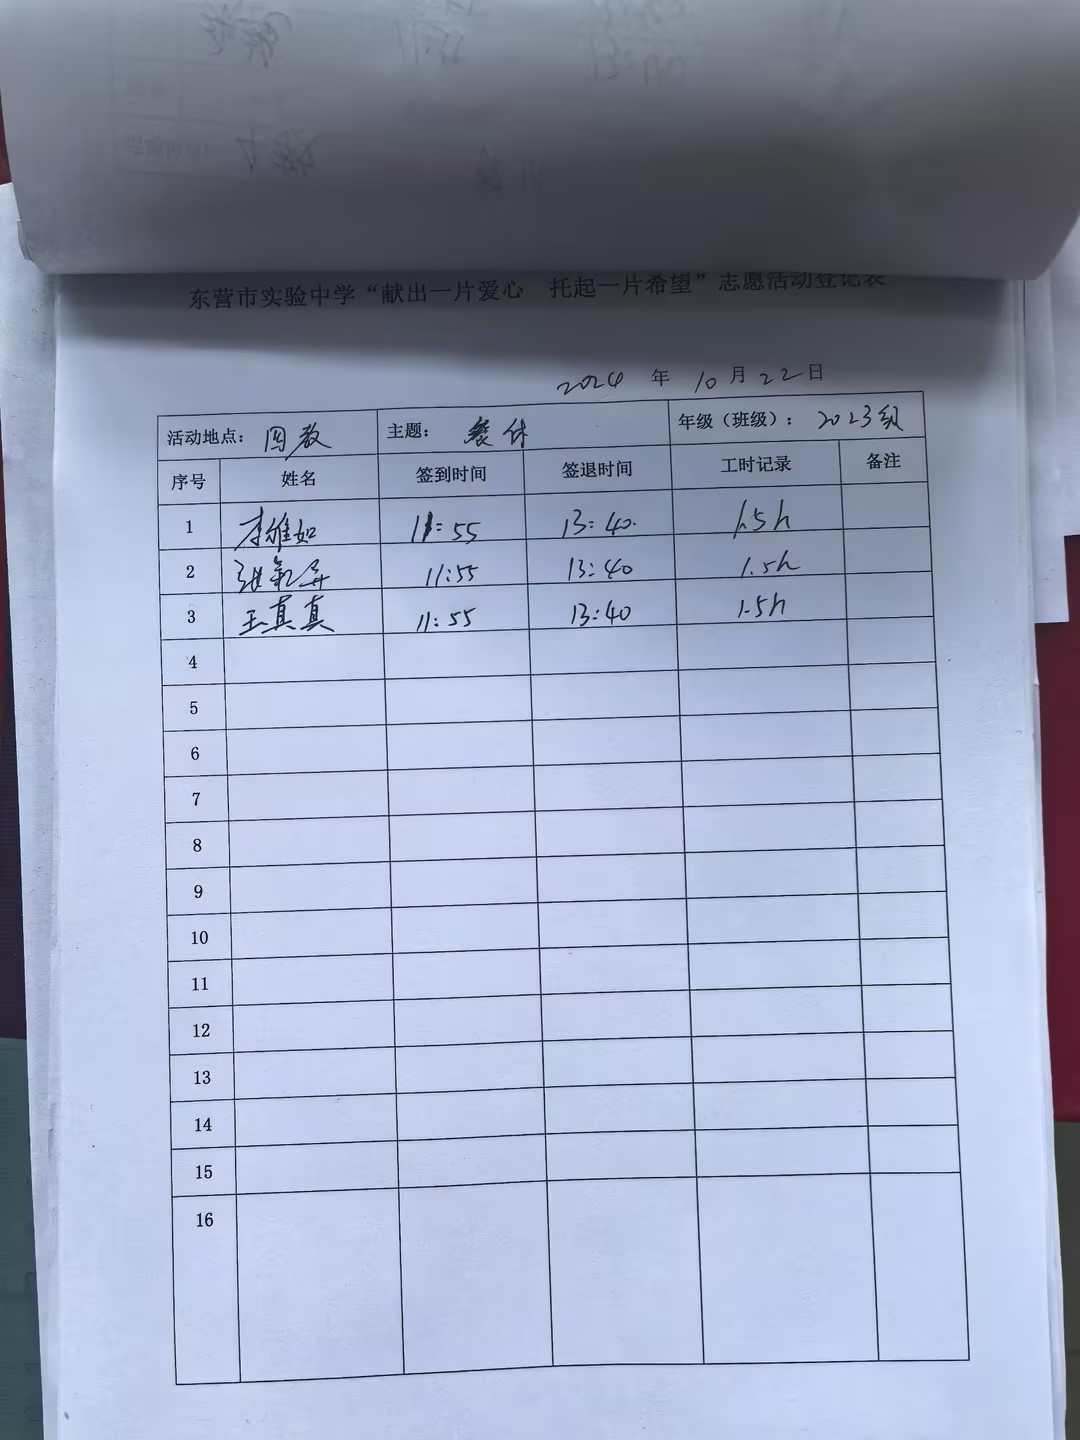 东营市实验中学“献出一片爱心 托起一片希望”志愿活动登记表
2024 年 10 月 22 日
活动地点： 主题： 餐休 年级（班级）： 2023级
序号 姓名 签到时间 签退时间 工时记录 备注
1 李雅如 11:55 13:40. 1.5h
2 张 11:55 13:40 1.5h
3 王真真 11:55 13:40 1.5h
4
5
6
7
8
9
10
11
12
13
14
15
16